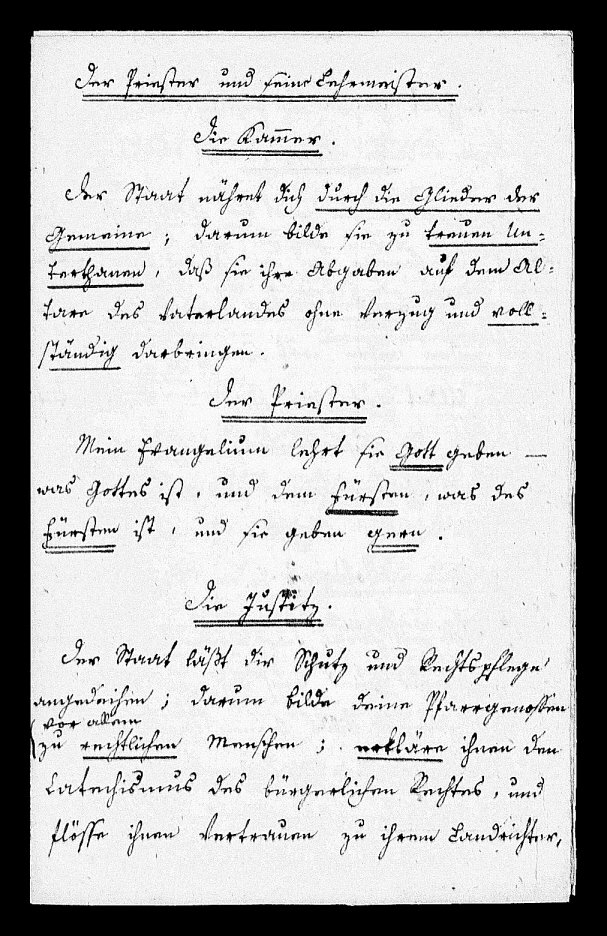 Der Priester und seine Lehrmeister.
Die Kammer.
Der Staat nähret dich durch die Glieder der
Gemeine; darum bilde sie zu treuen Un-
terthanen, daß sie ihre Abgaben auf dem Al-
tare des Vaterlandes ohne Verzug und voll-
ständig darbringen.
Der Priester.
Mein Evangelium lehrt sie Gott geben —
was Gottes ist, und dem Fürsten, was des
Fürsten ist, und sie geben gern.
Die Justitz.
Der Staat läßt dir Schutz und Rechtspflege
angedeihen; darum bilde deine Pfarrgenossen
vor allem
zu rechtlichen Menschen; erkläre ihnen den
Catechismus des bürgerlichen Rechtes, und
flösse ihnen Vertrauen zu ihrem Landrichter,